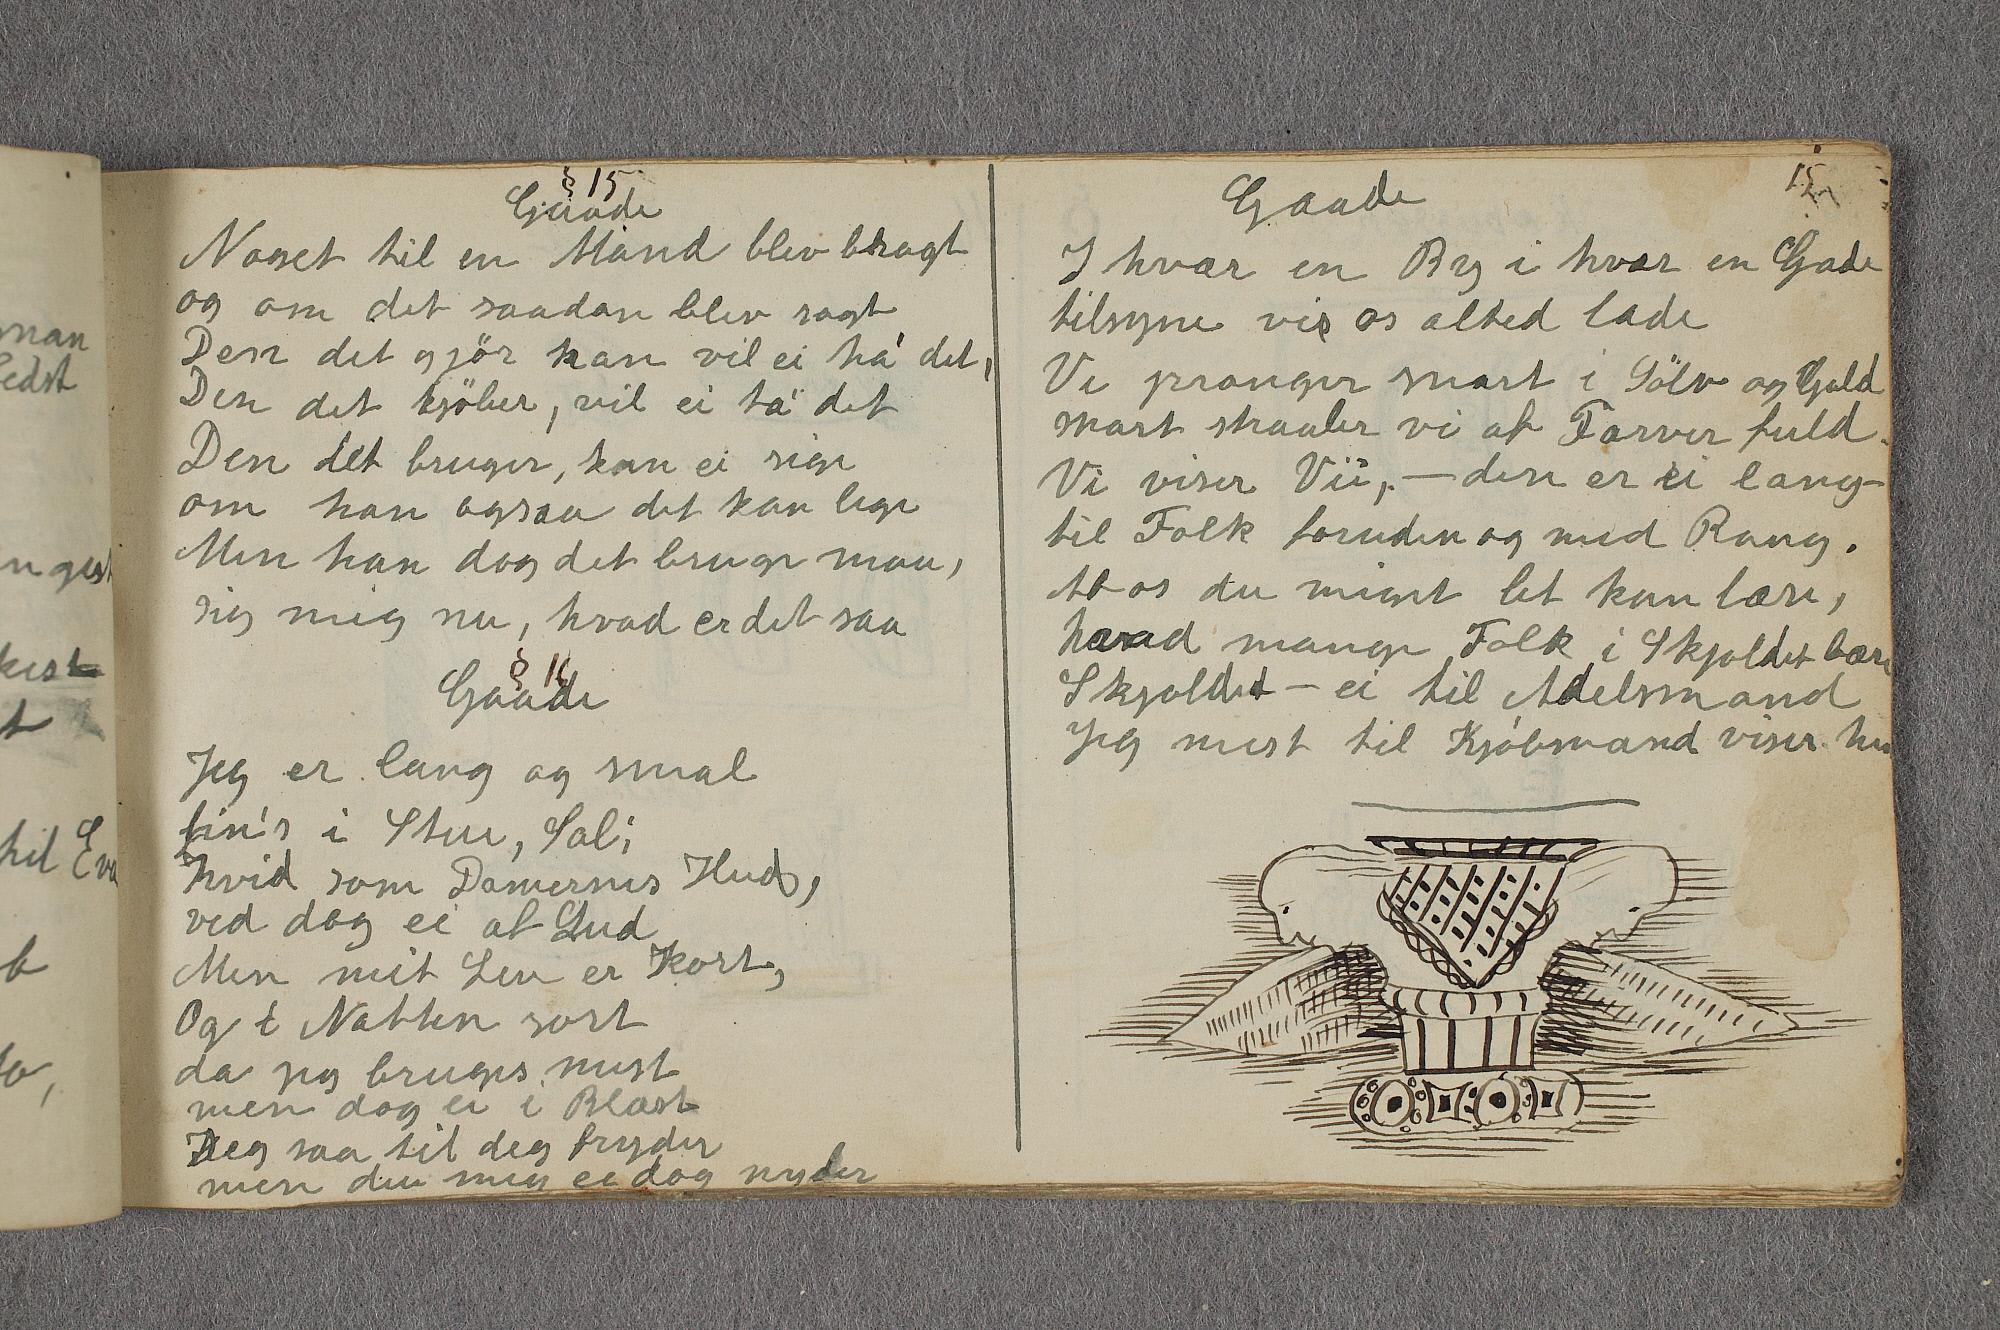 § 15
Gaade
Noget til en Mand blev bragt
og om det saadan blev sagt
Den det gjör han vil ei ha' det,
Den det kjöber, vil ei ta' det
Den det bruger, kan ei sige
om han ogsaa det kan lige
Men han dog det bruge maa,
sig mig nu, hvad er det saa
§ 16
Gaade
Jeg er lang og smal
fin's i Stue, Sal;
hvid som Damernes Hud,
ved dog ei af Gud
Men mit Lev er Kort,
Og i Natten sort
da jeg bruges mest
men dog ei i Blæst
Jeg saa til deg bryder
men du mig ei dog nyder
15
Gaade
I hvær en By i hvær en Gade
tilsyne vi os altid lade
Vi pranger snart i Sölv og Guld
snart straaler vi af Farver fuld.
Vi viser Vei, — den er ei lang —
til Folk foruden og med Rang.
Af os du meget let kan lære,
hvad mange Folk i Skjoldet bære
Skjoldet – ei til Adelsmand
Jeg mest til Kjöbmand viser
man
edst
til Eva